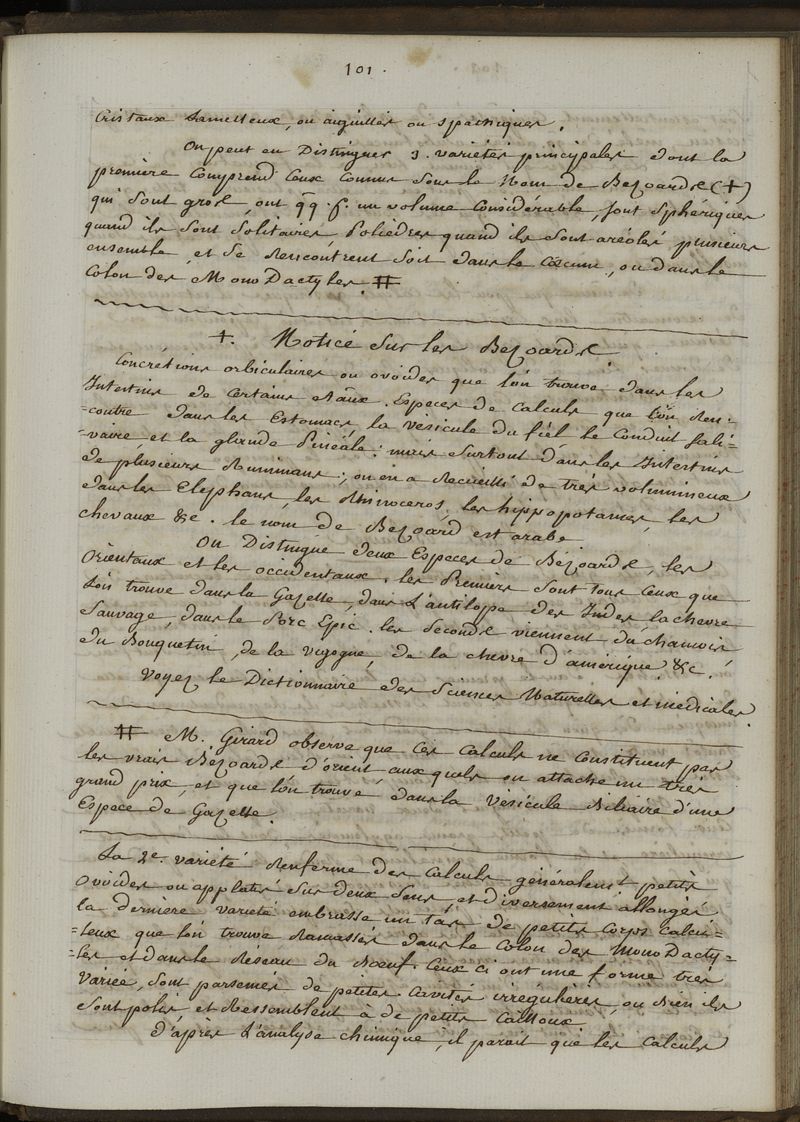 101.
Cristaux Lamelleux, ou aiguillés ou spathiques.
On peut en Distinguer 3. variétés principales dont la
première Comprend Ceux Connus Sous le Nom de Bezoards (+)
qui Sont gros, ont qq. f. un volume Considérable, Sont Sphériques
quand ils Sont Solitaires, Polièdres quand ils Sont aréolés, plusieurs
ensemble, et Se Rencontrent Soit dans le Cœcum, ou dans le
Colon des MonoDactyles. ⧺
+. Notice Sur les Bezoards.
Concrétions orbiculaires ou ovoides que l'on trouve dans les
Intestins de Certains Eaux. Espèces de Calculs que l'on Ren=
=contre dans les Estomacs, la Vésicule du fiel le Conduit Sali=
=vaire et la glande Pinéale; mais Surtout dans les Intestins
de plusieurs Ruminans; on en a Recueilli de très volumineux
dans les Elephans, les Rhinoceros, les hippopotames, les
chevaux &c. le nom de Bezoard est arabe
On Distingue deux Especes de Bézoards, les
Orientaux et les occidentaux. les Premiers Sont tous Ceux que
l'on trouve dans la Gazelle, dans L'antilope des Indes la chevre
Sauvage, dans le Porc Epic. les Seconds viennent du chamois
du Bouquetin, de la vigogne, de la chevre d'amérique &c.
Voyez le Dictionnaire des Sciences Naturelles et médicales.
⧺ M. Girard observe que Ces Calculs ne Constituent pas
les vrais Bezoards d'orient, aux quels on attache un très
grand prix, et que l'on trouve dans la Vésicule Biliaire d'une
Espece de Gazelle.
La 2e. variété Renferme des Calculs généralemt. petits
Ovoides ou applatis Sur deux Sens, et diversement allongés
la dernière variété embrasse un tas de petits Corps Calcu=
=leux que l'on trouve Ramassés dans le Colon des MonoDacty=
=les et dans le Réseau du Bœuf. Ceux ci ont une forme très
Variée, Sont parsemés de petites Cavités irregulières, ou Bien ils
Sont polis et Ressemblent à de petits Cailloux.
D'après L'analyse chimique, il parait que les Calculs